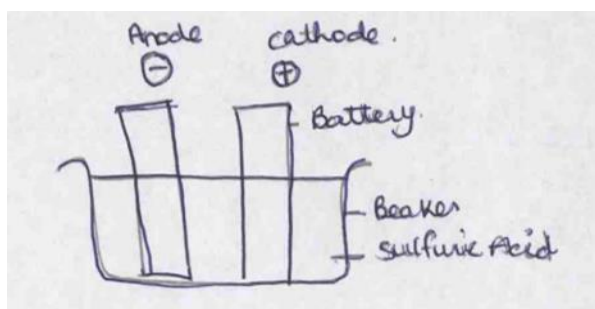 Anode cathode.
⊖ ⊕
Battery.
Beaker
Sulfuric Acid